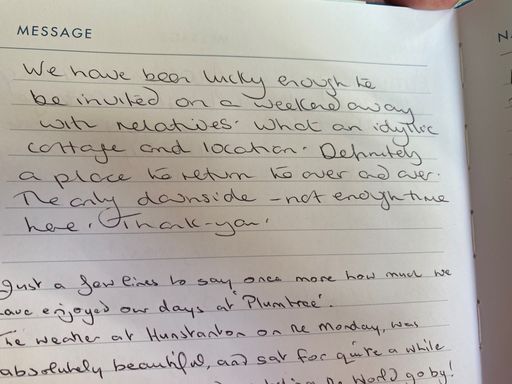 MESSAGE
N
We have been lucky enough to
be invited on a weekend away
with relatives. What an idyllic
cottage and location. Definitely
a place to return to over and over.
The only downside - not enough time
here. Thank-you.
Just a few lines to say once more how much we
have enjoyed our days at 'Plumtree'.
The weather at Hunstanton on the Monday, was
absolutely beautiful, and sat for quite a while
the World go by!